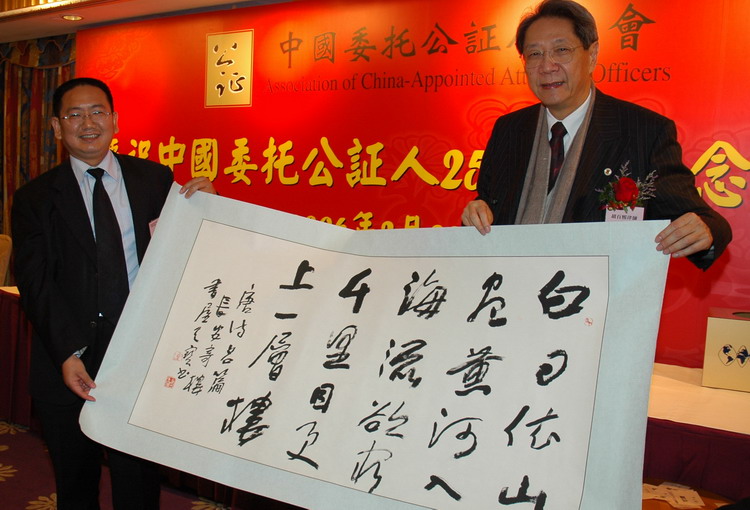 公证
中國委托公証人 會
Association of China-Appointed Att Officers
祝中國委托公証人25 念
白日依山
尽黄河入
海流欲穷
千里目更
上一層樓
唐诗名篇
長安
書屋